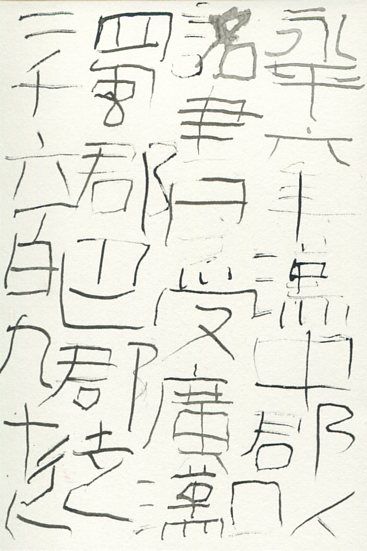 永平六年漢中郡以
詔書受廣漢
蜀郡巴郡徒
二千六百九十人